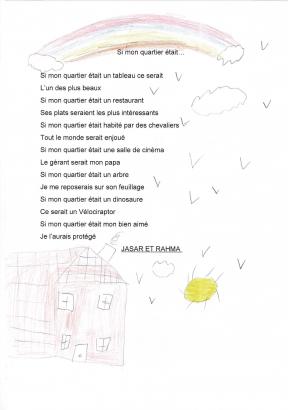 Si mon quartier était...
Si mon quartier était un tableau ce serait
L'un des plus beaux
Si mon quartier était un restaurant
Ses plats seraient les plus intéressants
Si mon quartier était habité par des chevaliers
Tout le monde serait enjoué
Si mon quartier était une salle de cinéma
Le gérant serait mon papa
Si mon quartier était un arbre
Je me reposerais sur son feuillage
Si mon quartier était un dinosaure
Ce serait un Vélociraptor
Si mon quartier était mon bien aimé
Je l'aurais protégé
JASAR ET RAHMA